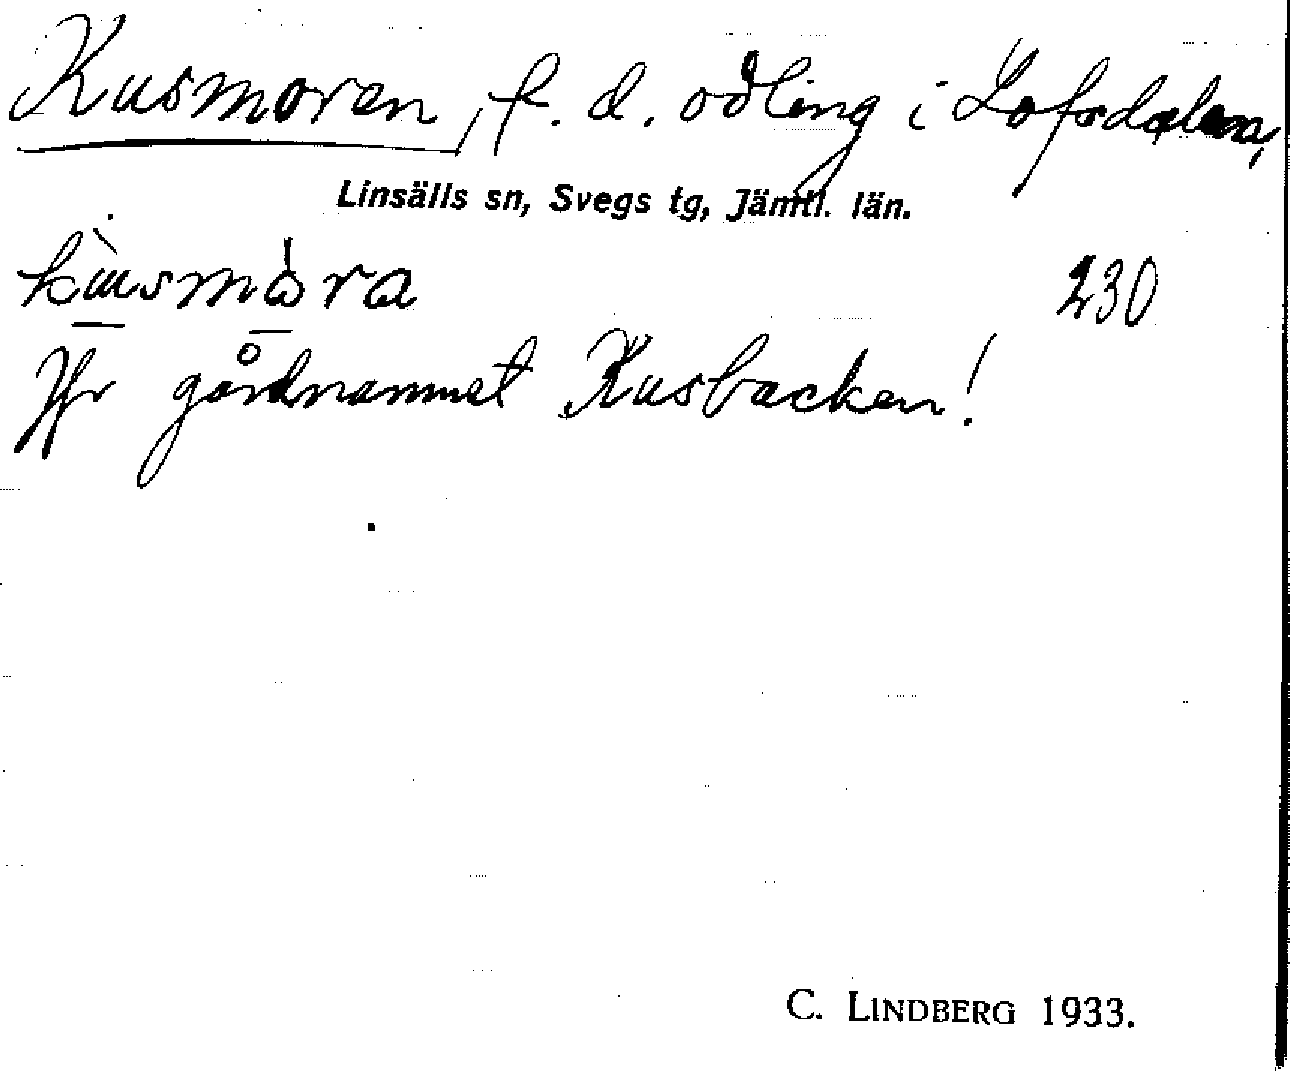 Kusmoren, f. d. odling i Lofsdalen,
Linsälls sn, Svegs tg, Jämtl. län.
230
Jfr gårdnamnet Kusbacken!
C. LINDBERG 1933.